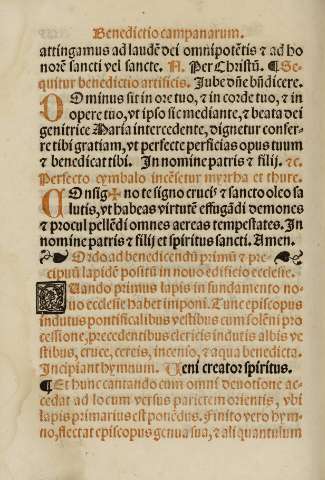 Benedictio campanarum.
attingamus ad laudē dei omnipotētis ⁊ ad ho
norē sancti vel sancte. N. Per Christū. ¶ Se
quitur benedictio artificis. Iube dn̄e bn̄dicere.
DOminus sit in ore tuo, ⁊ in corde tuo, ⁊ in
opere tuo, vt ipso sic mediante, ⁊ beata dei
genitrice Maria intercedente, dignetur confer-
re tibi gratiam, vt perfecte perficias opus tuum
⁊ benedicat tibi. In nomine patris ⁊ filij. ⁊c.
Perfecto cymbalo incēsetur myrrha et thure.
COnsig✠no te signo crucis ⁊ sancto oleo sa
lutis, vt habeas virtutē effugādi demones
⁊ procul pellēdi omnes aereas tempestates. In
nomine patris ⁊ filij et spiritus sancti. Amen.
Ordo ad benedicendū primū ⁊ pre-
cipuū lapidē positū in nouo edificio ecclesie.
QUando primus lapis in fundamento no-
uo ecclesie habet iniponi. Tunc episcopus
indutus pontificalibus vestibus cum solēni pro
cessione, precedentibus clericis indutis albis ve
stibus, cruce, cereis, incenso, ⁊ aqua benedicta.
Incipiant hymnum. Ueni creator spiritus.
¶ Et hunc cantando cum omni deuotione ac-
cedat ad locum versus parietem orientis, vbi
lapis primarius est ponēdus. Finito vero hym-
no, flectat episcopus genua sua, ⁊ ali quantulum